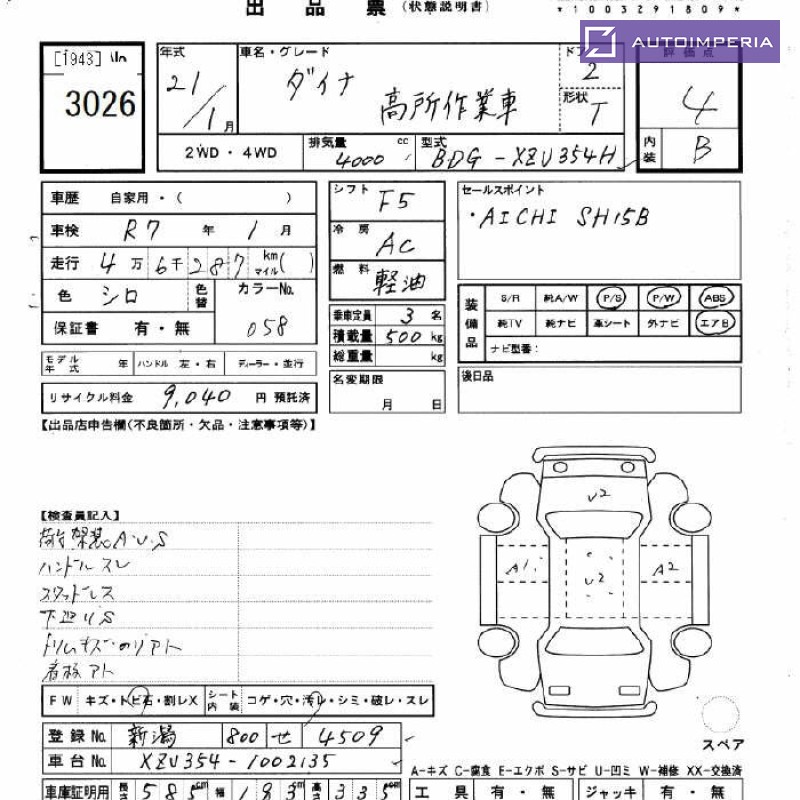 出品票 (状態説明書)
*1003291809*
AUTOIMPERIA
[1943]
3026
年式
21/1月
車名・グレード
ダイナ 高所作業車
ドア
2
形状
T
評価点
4
内装
B
2WD・4WD
排気量 4000 cc
型式 BDG-XZU354H
車歴 自家用・( )
車検 R7 年 1 月
走行 4万6千287 km マイル( )
色 シロ 色替 カラーNo. 058
保証書 有・無
モデル年式 年 ハンドル 左・右 ディーラー・並行
リサイクル料金 9,040 円 預託済
シフト F5
冷房 AC
燃料 軽油
乗車定員 3 名
積載量 500 kg
総重量 kg
名変期限
月 日
セールスポイント
・AICHI SH15B
装備品
S/R 純A/W P/S P/W ABS
純TV 純ナビ 革シート 外ナビ エアB
ナビ型番:
後日品
【出品店申告欄(不良箇所・欠品・注意事項等)】
【検査員記入】
荷台架装A・U・S
ハンドルスレ
スタッドレス
下廻りS
トリムキズ
着板アト
U2
A1
U2
A2
FW キズ・トビ石・割レX シート内装 コゲ・穴・汚レ・シミ・破レ・スレ
登録No. 新潟 800 せ 4509
車台No. XZU354-1002135
スペア
A-キズ C-腐食 E-エクボ S-サビ U-凹ミ W-補修 XX-交換済
車庫証明用 長さ 585cm 幅 183cm 高さ 335cm
工具 有・無 ジャッキ 有・無